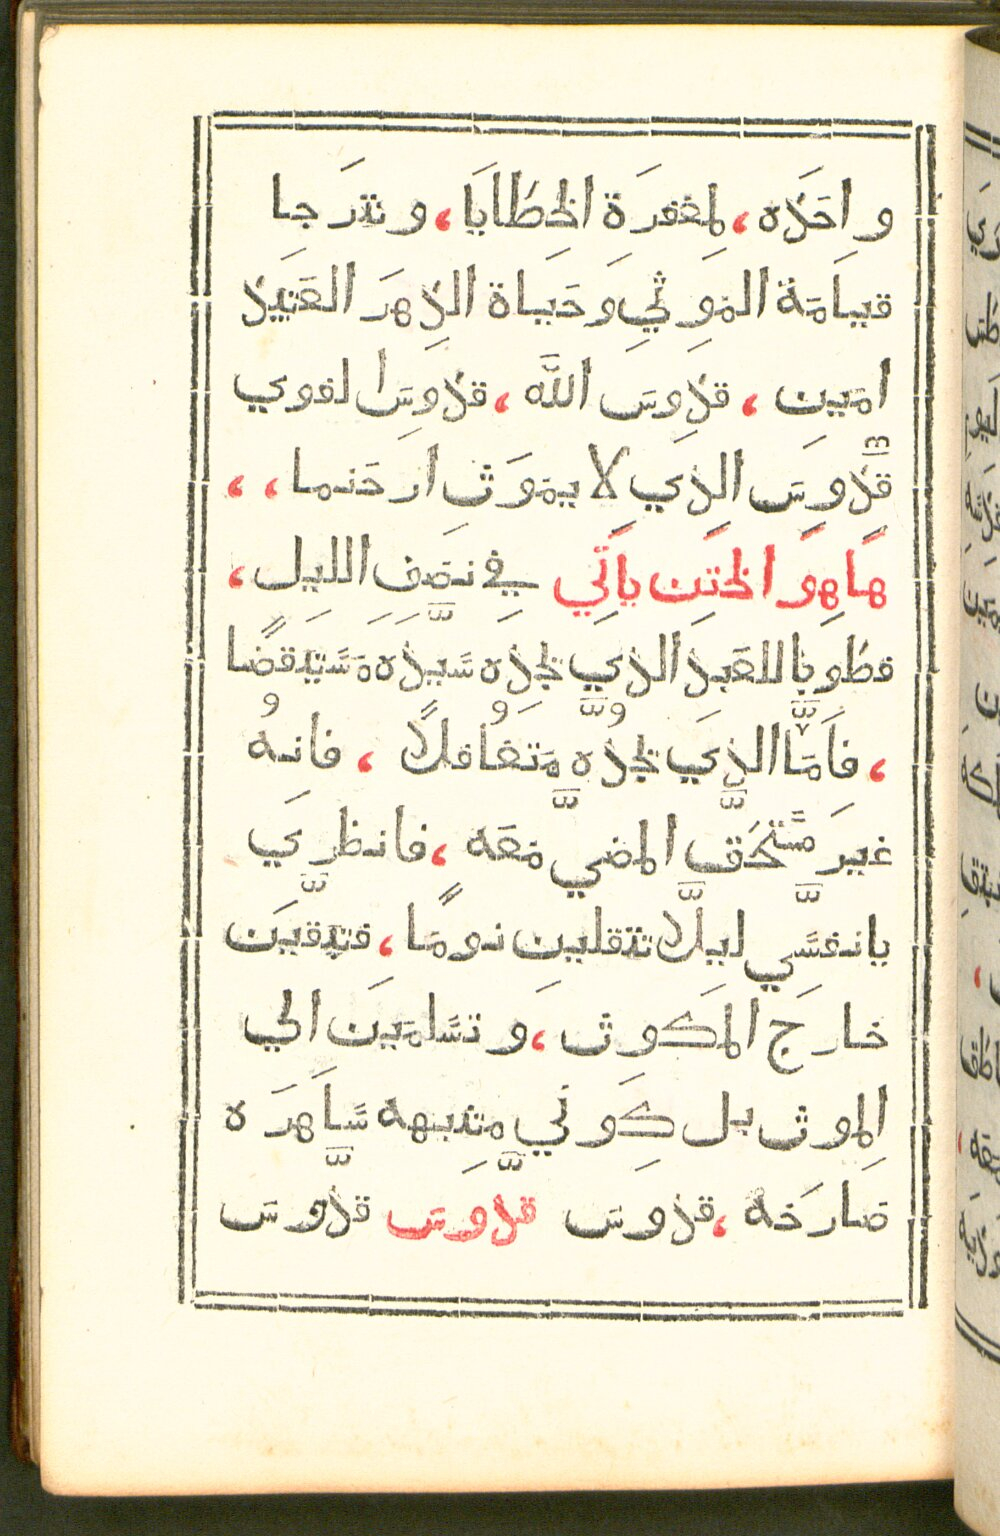 واحده، لمغفرة الخطايا، ونترجا
قيامة الموتي وحياة الدهر العتيد
امين ، قدوس الله ، قدوس القوي
قدوس الذي لا يموت ارحنما ، ،
هاهو الختن ياتي في نصف الليل ،
فطوبا للعبد الذي يجده سيده مستيقضا
، فاما الذي يجده متغافلا ، فانه
غير مستحق المضي معه ، فانظري
يانفسي ليلا تتقلين نوما ، فتبقين
خارج الملكوت ، وتسلمين الي
الموت بل كوني منتبهه ساهره
صارخه ، قدوس قدوس قدوس